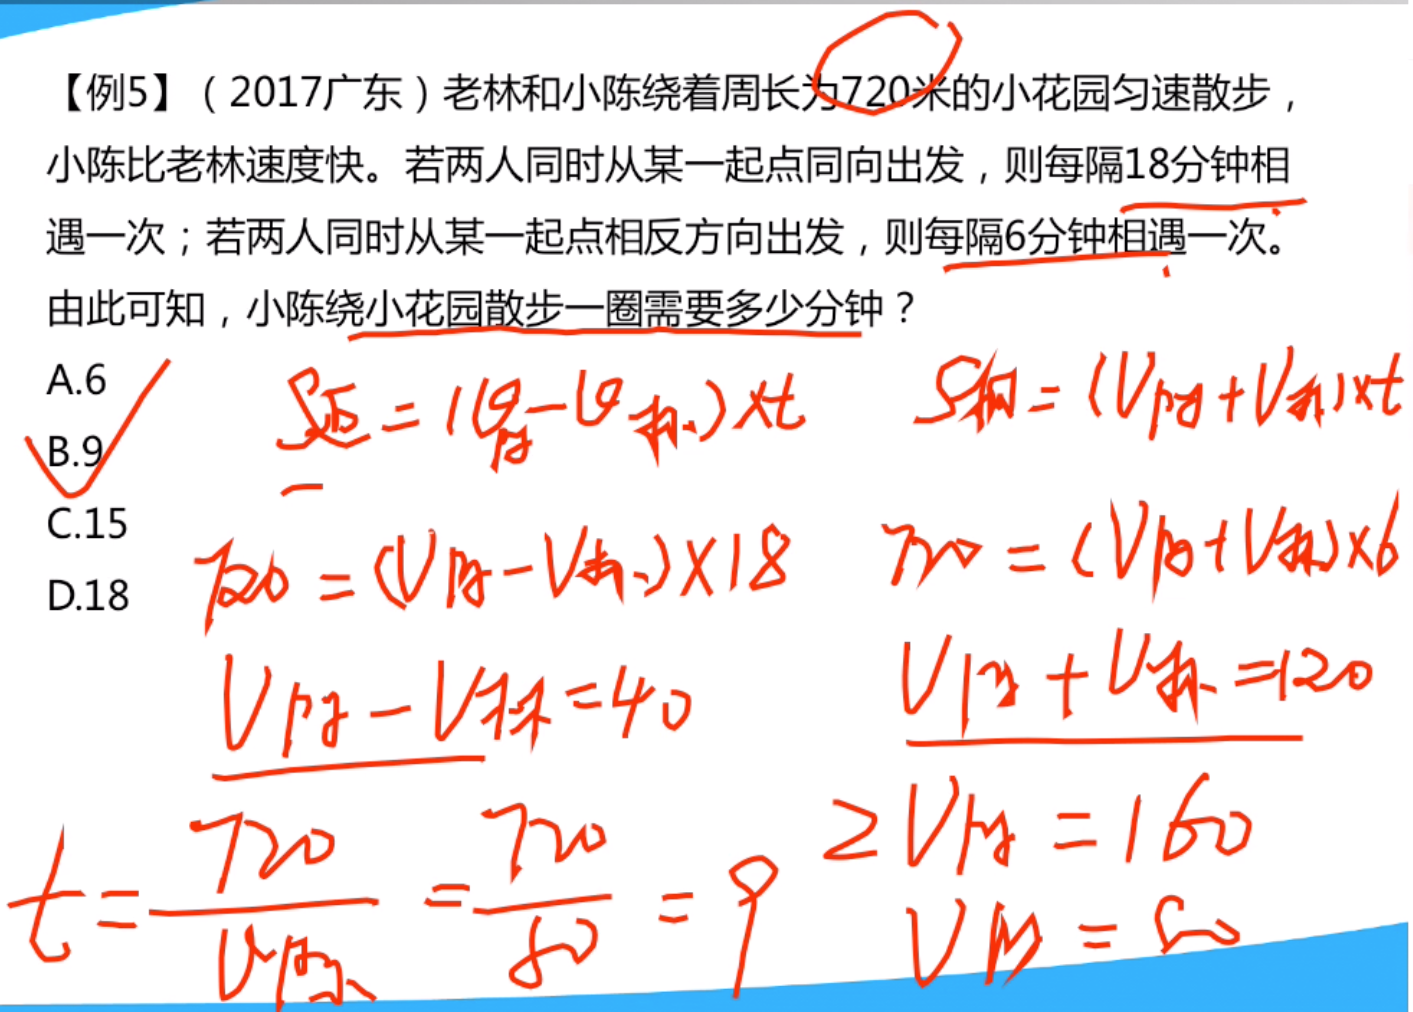 【例5】（2017广东）老林和小陈绕着周长为720米的小花园匀速散步，
小陈比老林速度快。若两人同时从某一起点同向出发，则每隔18分钟相
遇一次；若两人同时从某一起点相反方向出发，则每隔6分钟相遇一次。
由此可知，小陈绕小花园散步一圈需要多少分钟？
A.6
B.9
C.15
D.18
S追=(V陈-V林)×t
S相=(V陈+V林)×t
720=(V陈-V林)×18
720=(V陈+V林)×6
V陈-V林=40
V陈+V林=120
2V陈=160
V陈=80
t=720/V陈=720/80=9